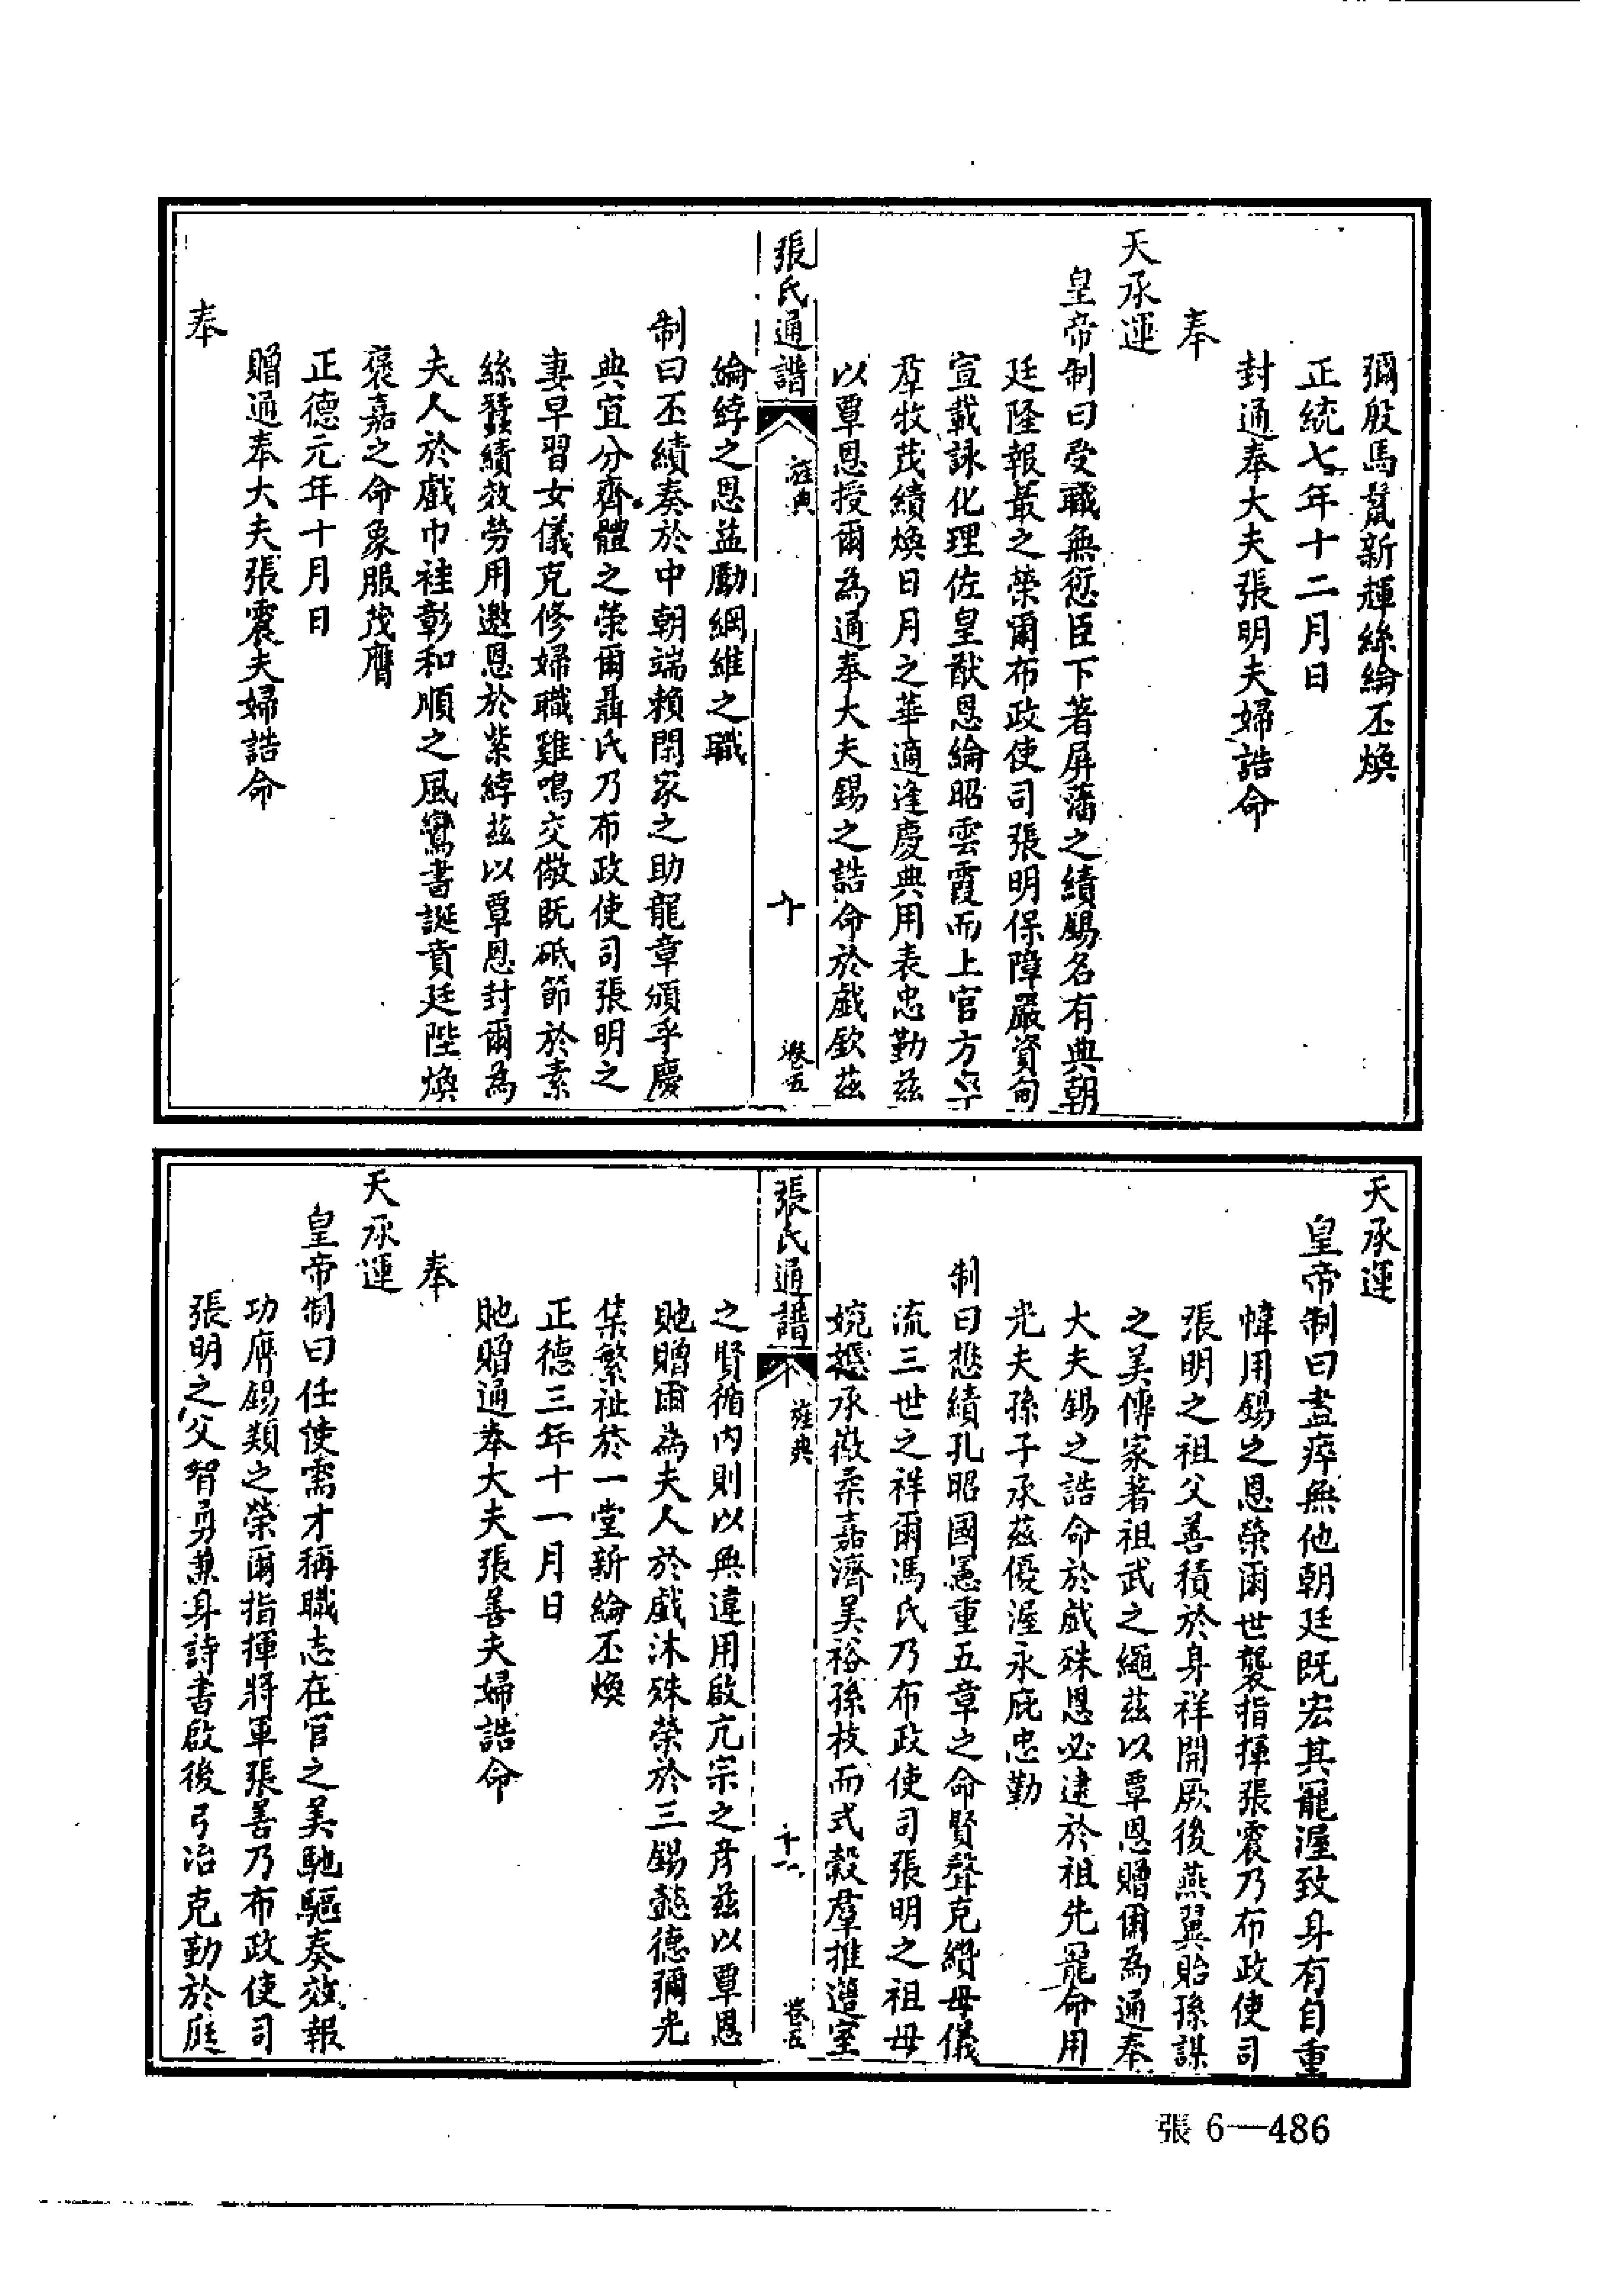 彌殷馬鬣新輝絲綸丕煥
正統七年十二月日
封通奉大夫張明夫婦誥命
奉
天承運
皇帝制曰受職無愆臣下著屏藩之績錫名有典朝
廷隆報最之榮爾布政使司張明保障嚴資旬
宣載詠化理佐皇猷恩綸昭雲霞而上官方率
羣牧茂績煥日月之華適逢慶典用表忠勤茲
以覃恩授爾為通奉大夫錫之誥命於戲欽茲
張氏通譜
旌典
十
卷五
綸綍之恩益勵綱維之職
制曰丕績奏於中朝端賴閑家之助龍章頒乎慶
典宜分齊體之榮爾聶氏乃布政使司張明之
妻早習女儀克修婦職雞鳴交儆既砥節於素
絲蠶績效勞用邀恩於紫綍茲以覃恩封爾為
夫人於戲巾袿彰和順之風鸞書誕賁廷陛煥
褒嘉之命象服茂膺
正德元年十月日
贈通奉大夫張震夫婦誥命
奉
天承運
皇帝制曰盡瘁無他朝廷既宏其寵渥致身有自重
幃用錫之恩榮爾世襲指揮張震乃布政使司
張明之祖父善積於身祥開厥後燕翼貽孫謀
之美傳家著祖武之繩茲以覃恩贈爾為通奉
大夫錫之誥命於戲殊恩必逮於祖先寵命用
光夫孫子承茲優渥永庇忠勤
制曰懋績孔昭國憲重五章之命賢聲克纘母儀
流三世之祥爾馮氏乃布政使司張明之祖母
婉嫕承徽柔嘉濟美裕孫枝而式穀羣推邃室
張氏通譜
旌典
卷五
之賢循內則以無違用啟亢宗之彥茲以覃恩
貤贈爾為夫人於戲沐殊榮於三錫懿德彌光
集繁祉於一堂新綸丕煥
正德三年十一月日
貤贈通奉大夫張善夫婦誥命
奉
天承運
皇帝制曰任使需才稱職志在官之美馳驅奏效報
功膺錫類之榮爾指揮將軍張善乃布政使司
張明之父智勇兼身詩書啟後弓冶克勤於庭
張 6—486